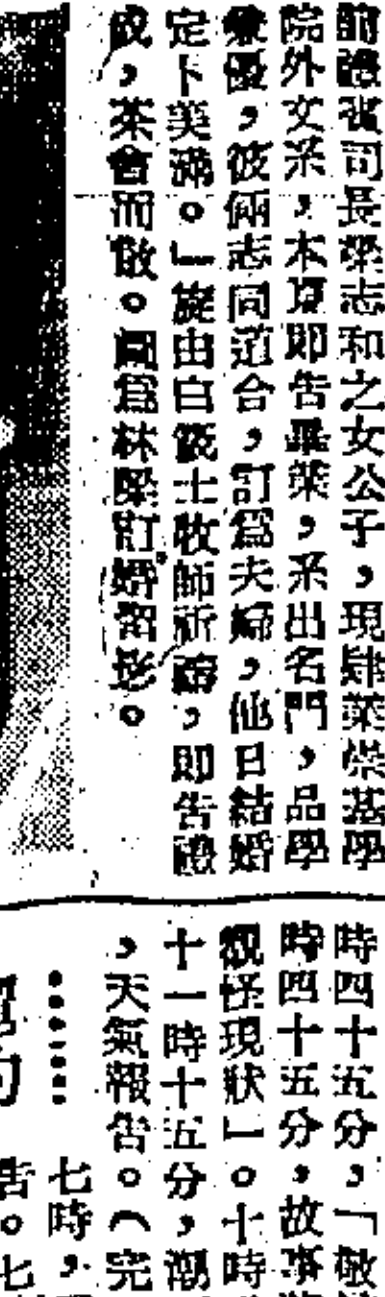 前德宙司長梁志和之女公子，現肄業崇基學
院外文系，本夏即告畢業，系出名門，品學
兼優，彼倆志同道合，訂爲夫婦，他日結婚
定卜美滿。」旋由白籛士牧師祈禱，即告禮
成，茶會而散。圖爲林梁訂婚留影。
時四十五分，「敬
時四十五分，故事
觀怪現狀」。十時
十一時十五分，潮
，天氣報告。（完
七時，
告。七